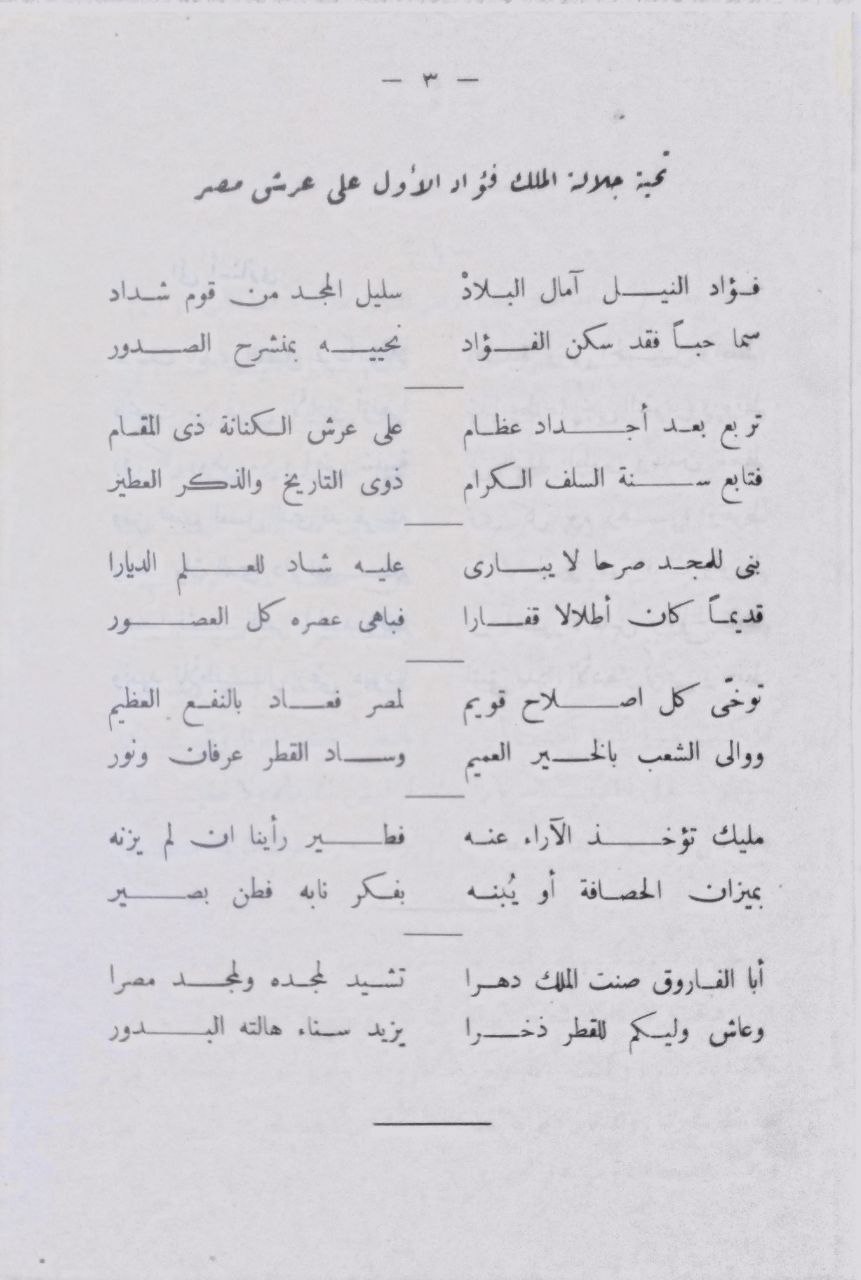 — ٣ —
تحية جلالة الملك فؤاد الأول على عرش مصر
فؤاد النيل آمال البلادْ سليل المجد من قوم شداد
سما حباً فقد سكن الفؤاد نحييه بمنشرح الصدور
تربع بعد أجداد عظام على عرش الكنانة ذى المقام
فتابع سنة السلف الكرام ذوى التاريخ والذكر العطير
بنى للمجد صرحا لا يبارى عليه شاد للعلم الديارا
قديماً كان أطلالا قفارا فباهى عصره كل العصور
توخّى كل اصلاح قويم لمصر فعاد بالنفع العظيم
ووالى الشعب بالخير العميم وساد القطر عرفان ونور
مليك تؤخذ الآراء عنه فطير رأينا ان لم يزنه
بميزان الحصافة أو يُبنه بفكر نابه فطن بصير
أبا الفاروق صنت الملك دهرا تشيد لمجده ولمجد مصرا
وعاش وليكم للقطر ذخرا يزيد سناء هالته البدور